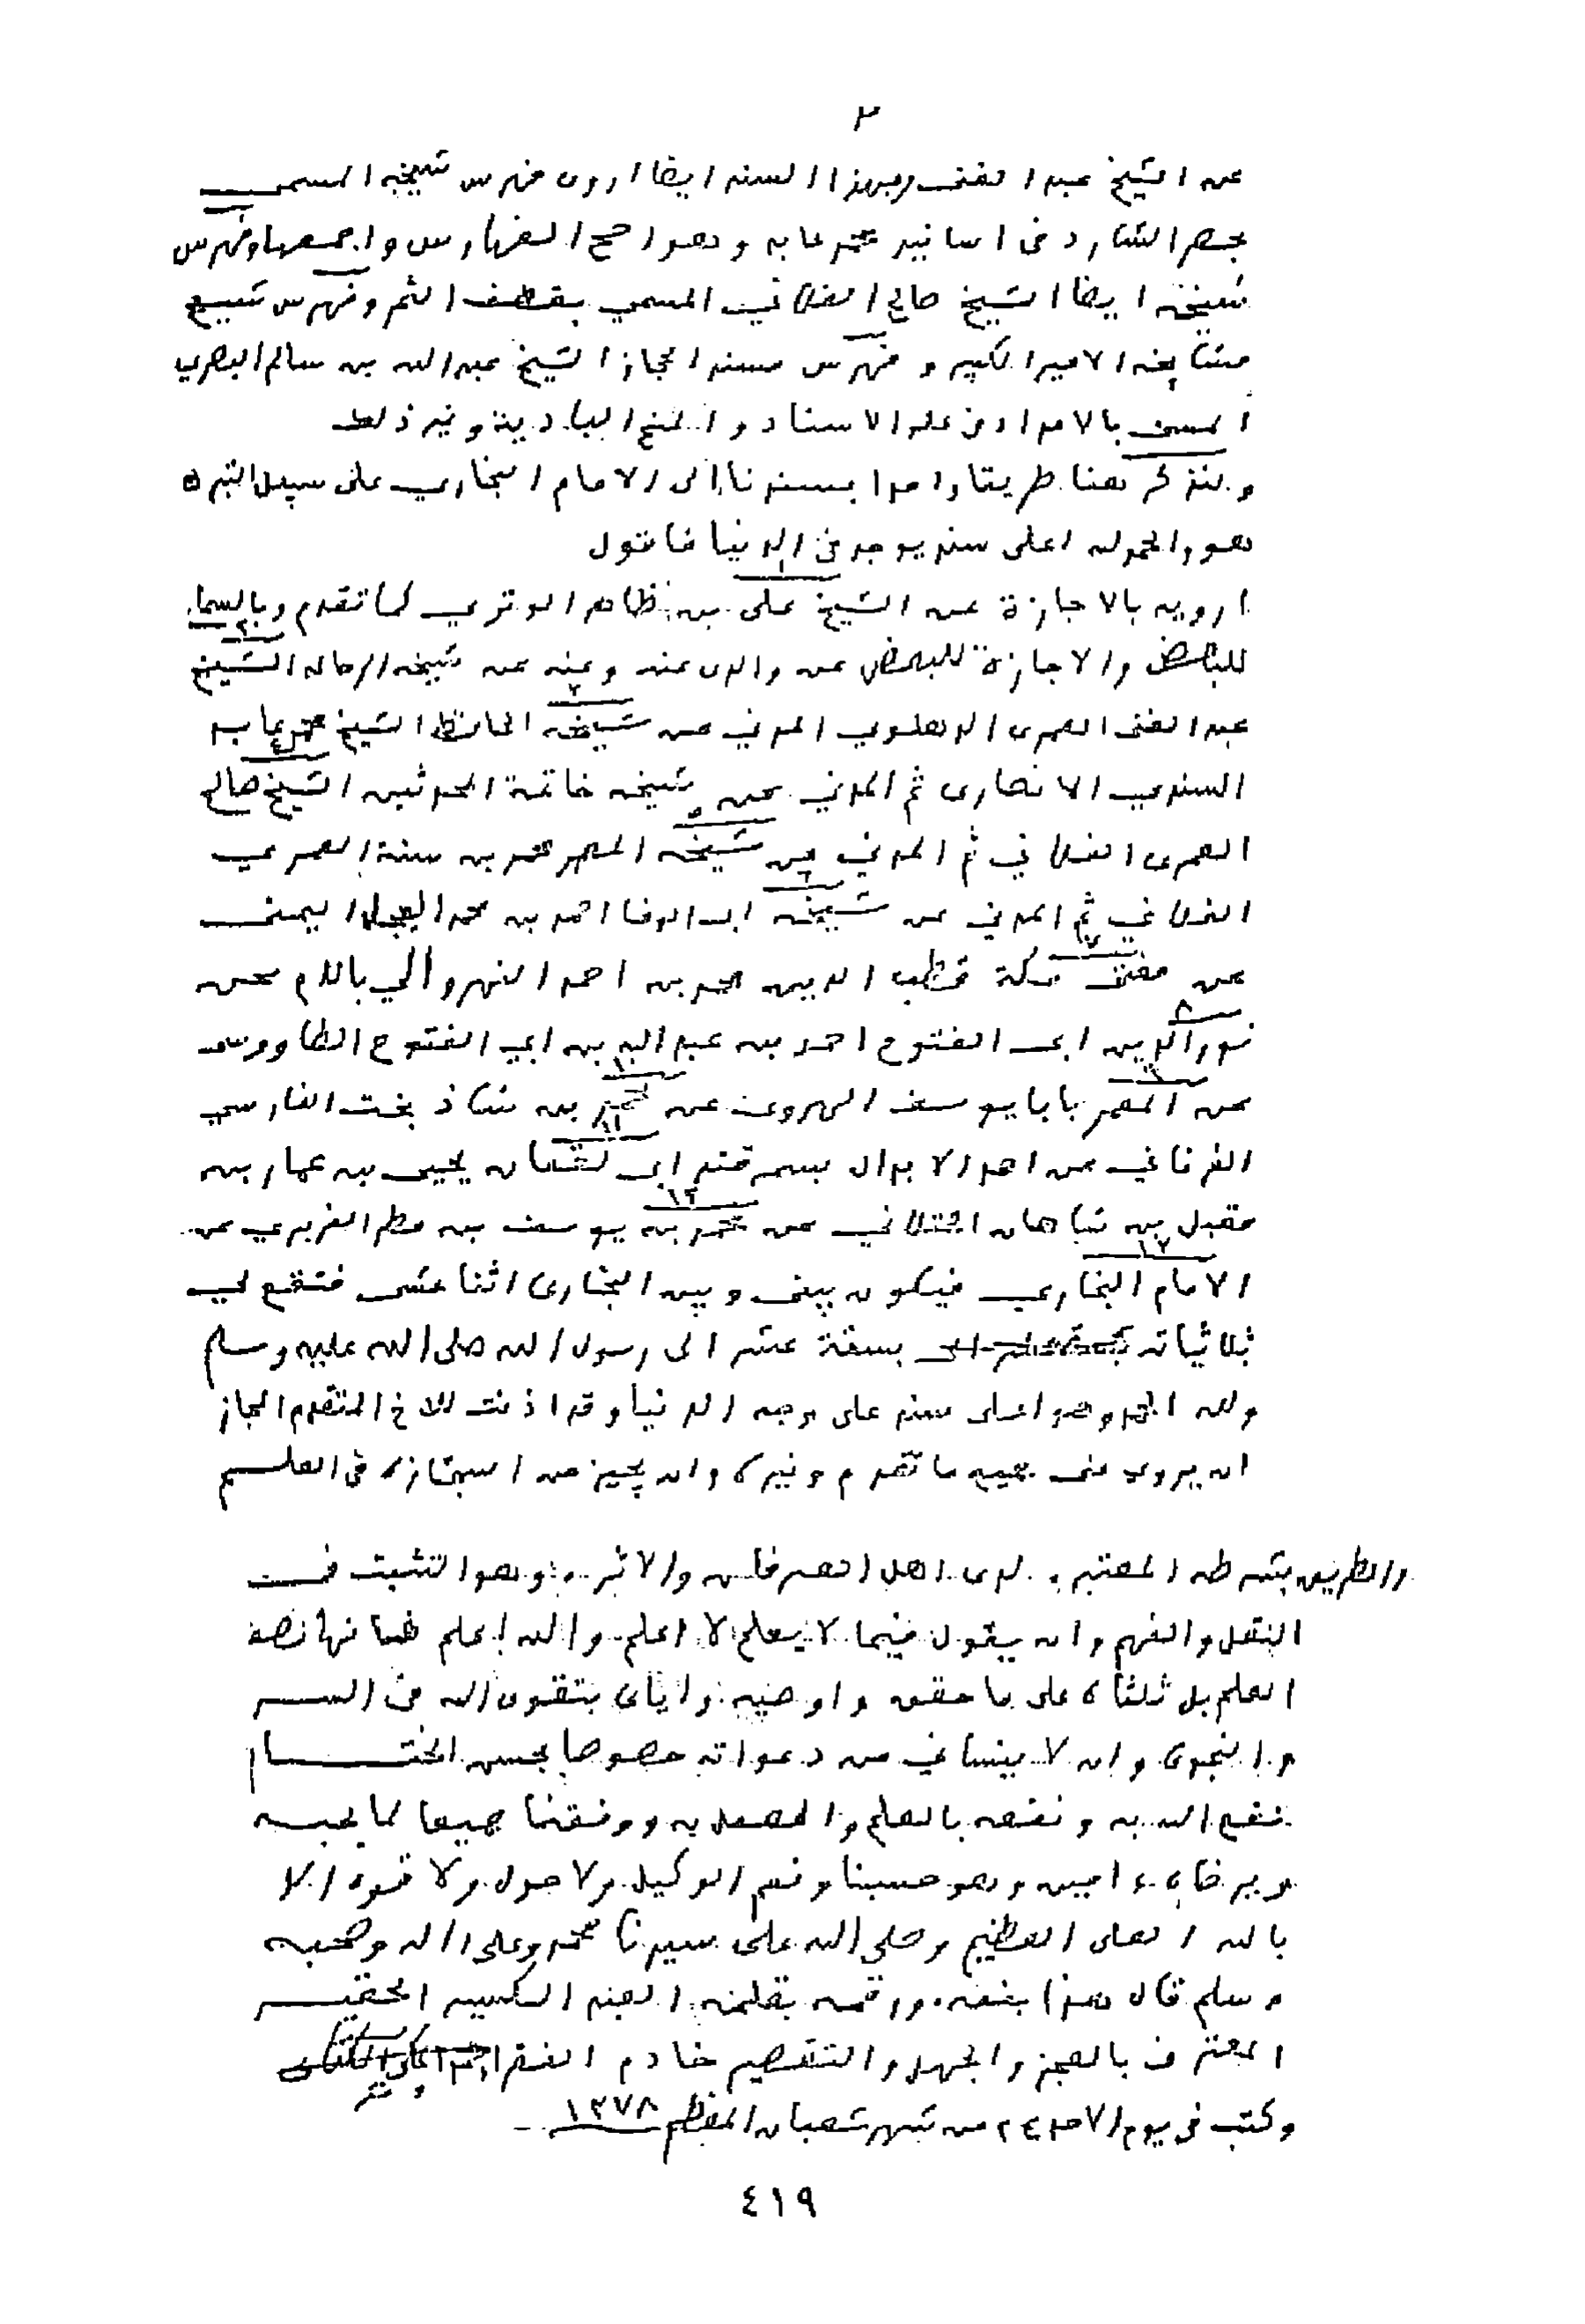 ٣
عن الشيخ عبد الغني وبهذا السند ايضا اروى فهرس شيخه المسمى
بحصر الشارد في اسانيد محمد عابد وهو اصح الفهارس واجمعها وفهرس
شيخه ايضا الشيخ صالح الفلاني المسمى بقطف الثمر وفهرس شيع
مشايخه الامير الكبير وفهرس مسند الحجاز الشيخ عبد الله بن سالم البصري
المسمى بالامداد في علو الاسناد والمنح البادية وغير ذلك
ولنذكر هنا طريقا واحدا بسندنا الى الامام البخاري على سبيل التبرك
هو والحمد لله اعلى سند يوجد في الدنيا فاقول
ارويه بالاجازة عن الشيخ على بن ظاهر الوتري كما تقدم وبالسماع
للبعض والاجازة للبعض عن والدى عنه وعنه عن شيخه الرحاله الشيخ
عبد الغنى العمرى الدهلوي المدني عن شيخه الحافظ الشيخ محمد عابد
السندي الانصارى ثم المدني عن شيخه خاتمة المحدثين الشيخ صالح
العمرى الفلاني ثم المدني عن شيخه المعمر محمد بن سنة العمري
الفلاني ثم المدني عن شيخه ابى الوفا احمد بن محمد العجل اليمنى
عن مفتى مكة قطب الدين محمد بن احمد النهروالي باللام عن
نور الدين ابى الفتوح احمد بن عبد الله بن ابي الفتوح الطاووسى
عن المعمر بابا يوسف الهروى عن محمد بن شاذ بخت الفارسي
الفرغاني عن احد الابدال بسمرقند ابى لقمان يحيى بن عمار بن
مقبل بن شاهان الختلاني عن محمد بن يوسف بن مطر الفربري عن
الامام البخاري فيكون بينى وبين البخارى اثنا عشر فتقع لي
ثلاثياته بستة عشر الى رسول الله صلى الله عليه وسلم
ولله الحمد وهو اعلى سند على وجه الدنيا وقد اذنت للاخ المتقدم المجاز
ان يروي عنى جميع ما تقدم وغيره وان يجيز من استجازه في العلم
والطريق بشرطه المعتبر لدى اهل العرفان والاثر وهو التثبت في
النقل والفهم وان يقول فيما لا يعلم لا اعلم والله اعلم فانها نصف
العلم بل ثلثاه على ما حقق واوصيه واياى بتقوى الله في السر
والنجوى وان لا ينساني من دعواته خصوصا بحسن الختام
نفع الله به ونفعه بالعلم والعمل به ووفقنا جميعا لما يحبه
ويرضاه امين وهو حسبنا ونعم الوكيل ولا حول ولا قوة الا
بالله العلى العظيم وصلى الله على سيدنا محمد وعلى اله وصحبه
وسلم قال هذا بفمه ورقمه بقلمه العبد الكسير الحقير
المعترف بالعجز والجهل والتقصير خادم الفقرا
وكتب في يوم الاحد ٢٤ من شهر شعبان المعظم ١٣٧٨
٤١٩